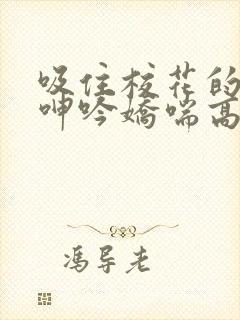 吸住校花的
呻吟娇喘高
冯导老